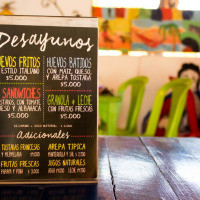 Desayunos
HUEVOS FRITOS
ESTILO ITALIANO
$5.000
HUEVOS BATIDOS
CON MAIZ, QUESO,
Y AREPA TOSTADA
$5.000
SANDWICHES
TOSTADOS, CON TOMATE,
QUESO Y ALBAHACA
$5.000
GRANOLA + LECHE
CON FRUTAS FRESCAS
$5.000
Adicionales
TOSTADAS FRANCESAS
Y MERMELADA
AREPA TIPICA
MANTEQUILLA Y SAL
FRUTAS FRESCAS
PAPAYA Y PIÑA
JUGOS NATURALES